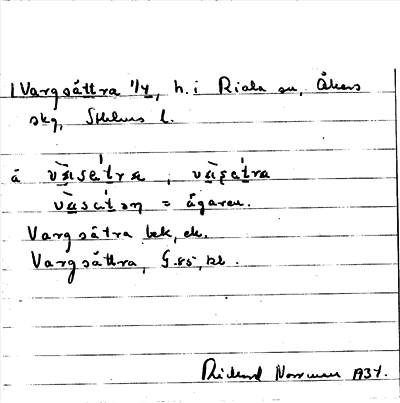 Vargsättra 1/4, h. i Riala sn, Åkers
skg, Sthlms l.
å våsätra, våsätra
våsätən = ägaren.
Vargsätra bek, ek.
Vargsättra, G.85, bl.
Rickard Norrman 1934.